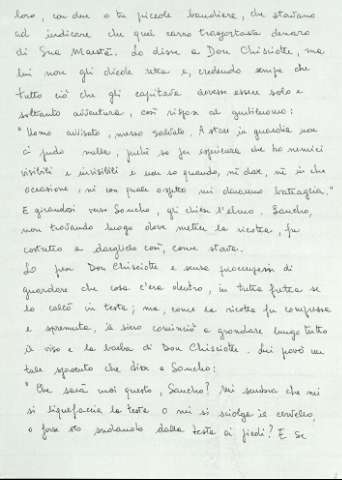 loro, con due o tre piccole bandiere, che stavano
ad indicare che quel carro trasportava denaro
di Sua Maestà. Lo disse a Don Chisciotte, ma
lui non gli diede retta e, credendo sempre che
tutto ciò che gli capitava dovesse essere solo e
soltanto avventura, così rispose al gentiluomo:
"Uomo avvisato, mezzo salvato. A stare in guardia non
ci perdo nulla, perché so per esperienza che ho nemici
visibili e invisibili e non so quando, né dove, né in che
occasione, né con quale aspetto mi daranno battaglia."
E girandosi verso Sancho, gli chiese l'elmo. Sancho,
non trovando luogo dove mettere la ricotta, fu
costretto a darglielo così, come stava.
Lo prese Don Chisciotte e senza preoccuparsi di
guardare che cosa c'era dentro, in tutta fretta se
lo calcò in testa; ma, come la ricotta fu compressa
e spremuta, il siero cominciò a grondare lungo tutto
il viso e la barba di Don Chisciotte. Lui provò un
tale spavento che disse a Sancho:
"Che sarà mai questo, Sancho? Mi sembra che mi
si liquefaccia la testa o mi si sciolga il cervello,
o forse sto sudando dalla testa ai piedi? E se